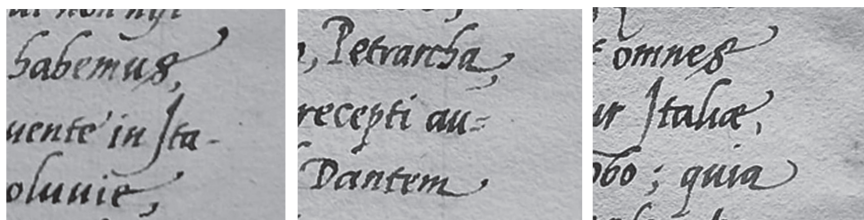 habemus,
uente in Ita-
oluuie,
, Petrarcha,
recepti au-
Dantem
omnes
ur Italiæ,
obo; quia